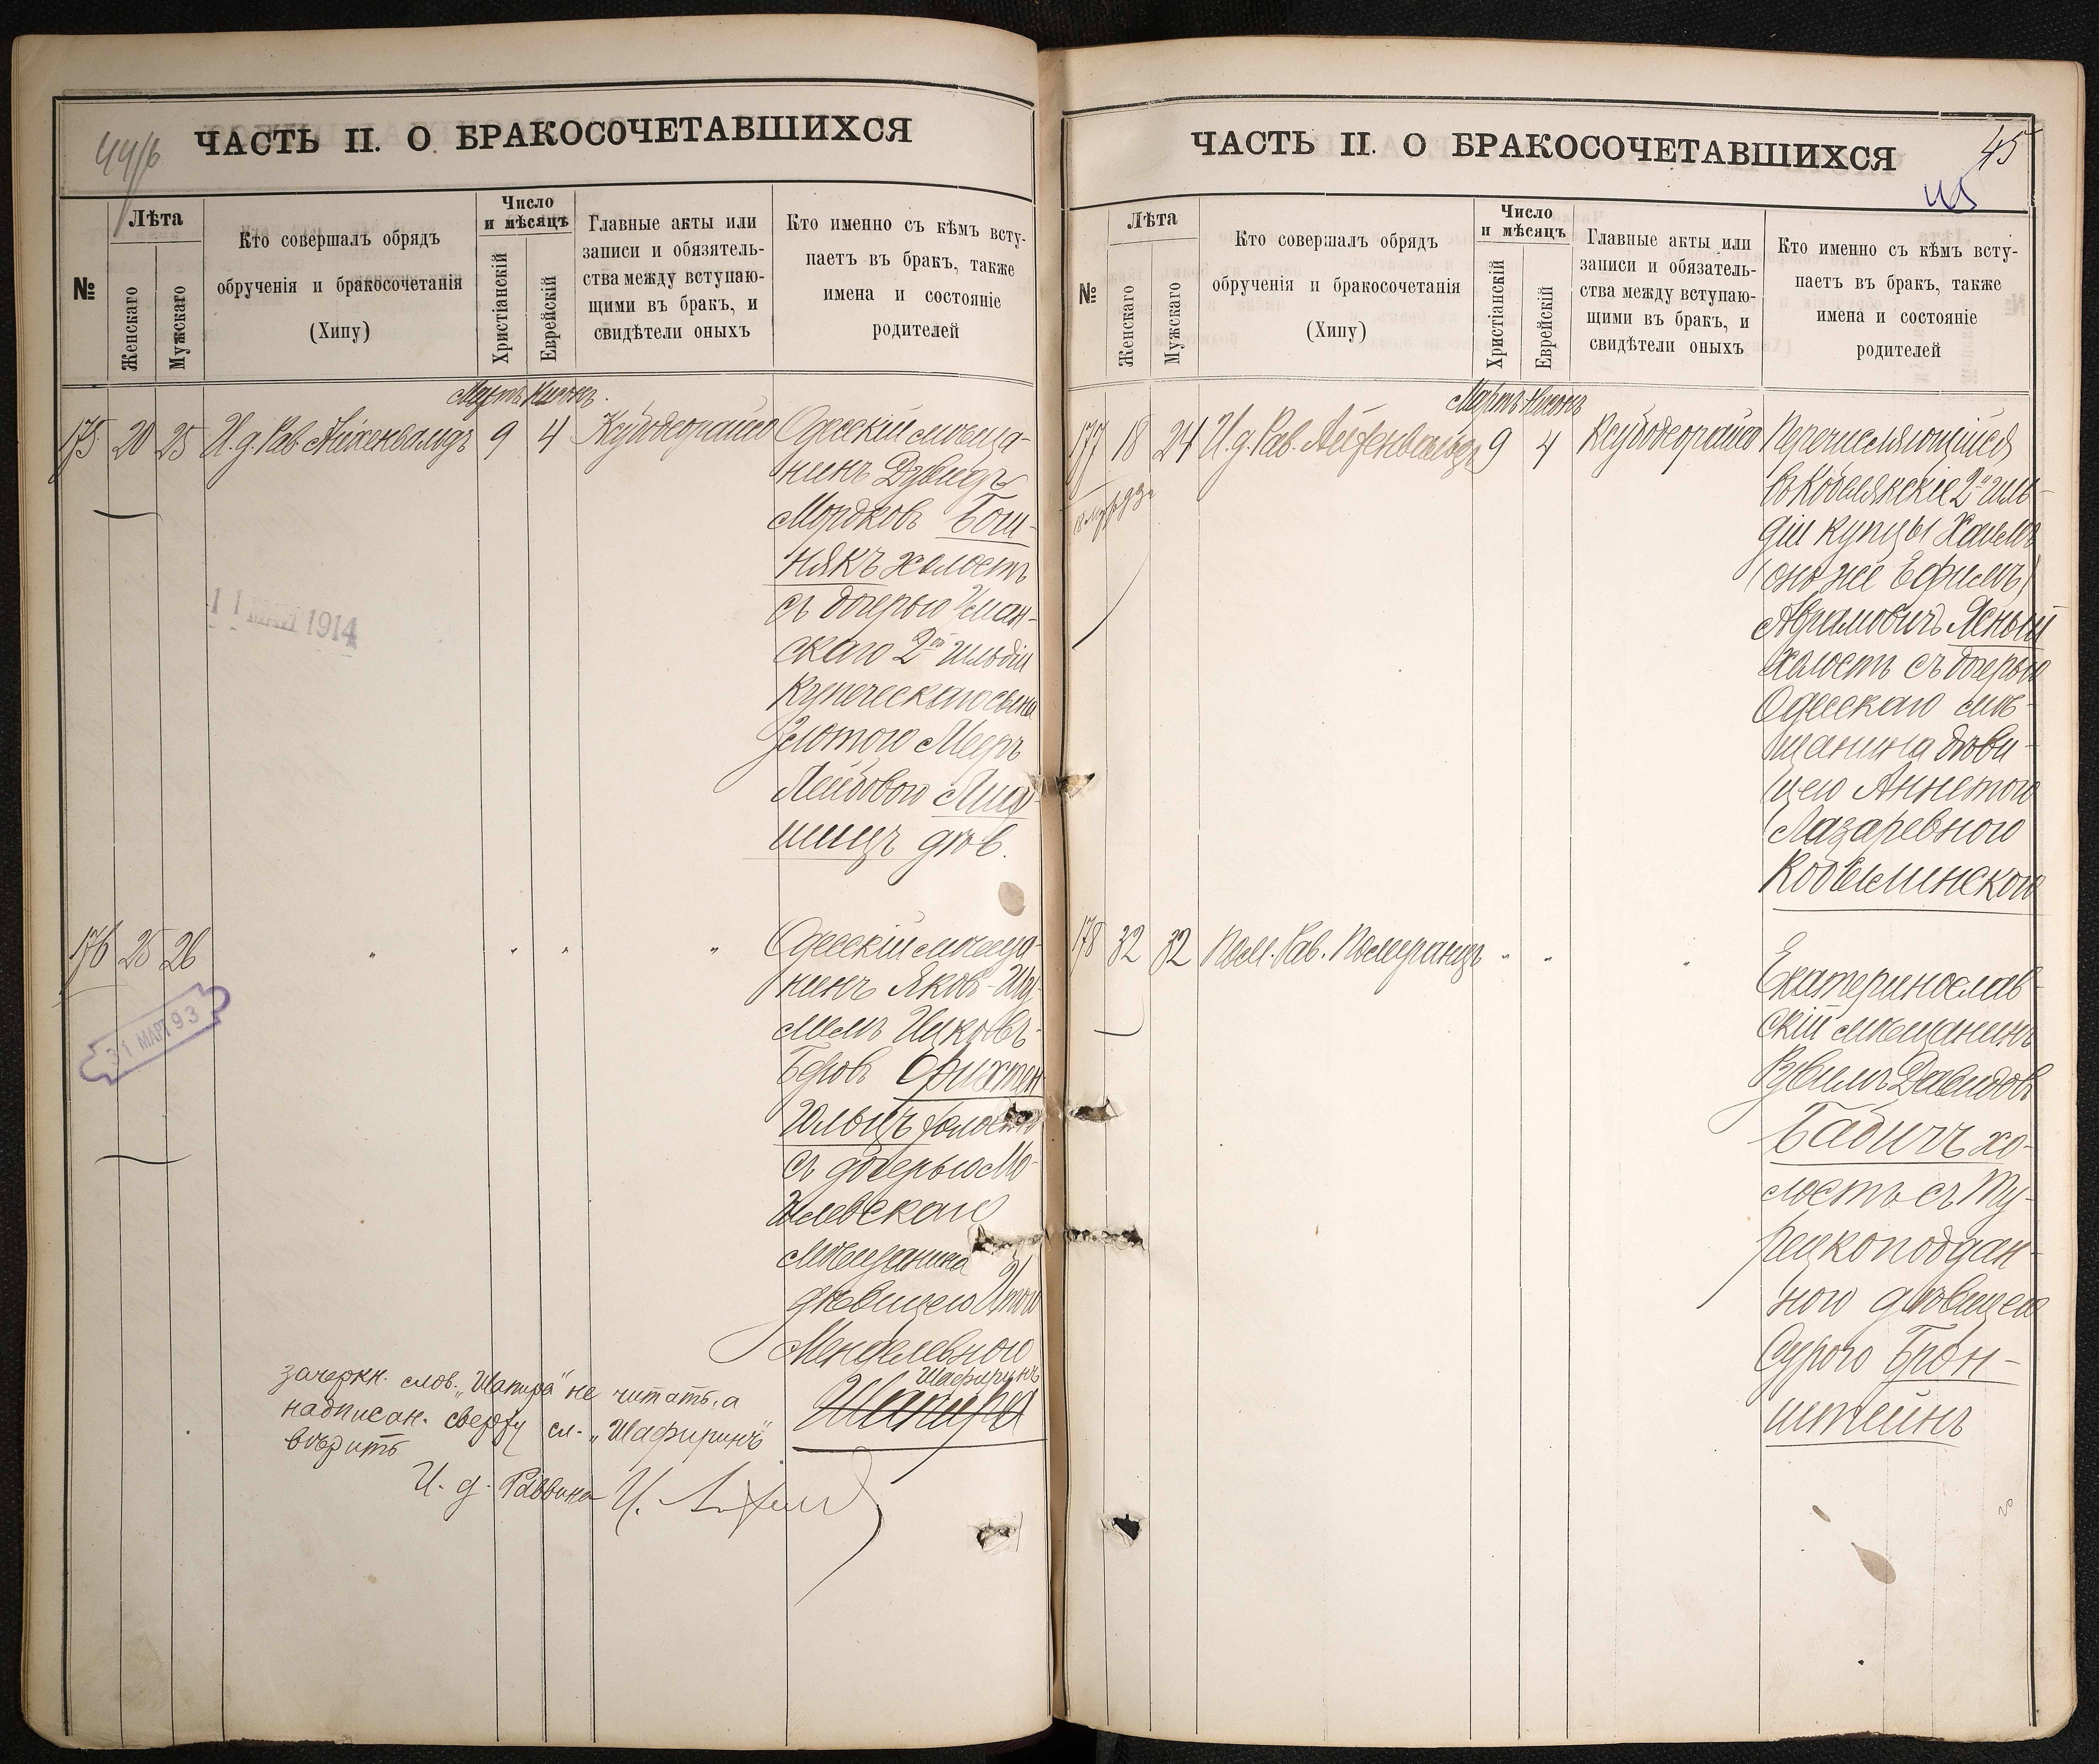 44/б
ЧАСТЬ II. О БРАКОСОЧЕТАВШИХСЯ
№
Лѣта
Женскаго
Мужскаго
Кто совершалъ обрядъ
обрученія и бракосочетанія
(Хипу)
Число
и мѣсяцъ
Христіанскій
Еврейскій
Главные акты или
записи и обязятель-
ства между вступаю-
щими въ бракъ, и
свидѣтели оныхъ
Кто именно съ кѣмъ всту-
паетъ въ бракъ, также
имена и состояніе
родителей
Мартъ Нисонъ
175 20 25 И. д. Рав. Айхенвальдъ 9 4 Ксубодеорайсо Одесскій мѣща-
нинъ Дувидъ
Мордковъ Бош-
някъ холостъ
съ дочерью Уман-
скаго 2ой гильдіи
купеческаго сына
Златою Меръ
Лейбовою Лиф-
шицъ дѣв.
11 МАЙ 1914
176 25 26 " " " " Одесскій мѣща-
нинъ Яковъ-Шу-
лимъ Ицковъ-
Беровъ Фихтен-
гольцъ холостъ
съ дочерью Мо-
гилевскаго
мѣщанина
дѣвицею Итою
Менделевною
Шафиринъ
Шапира
31 МАРТ 93
зачеркн. слов. „Шапира" не читать, а
надписан. сверху сл. „Шафиринъ"
вѣрить
И. д. Раввина
45
ЧАСТЬ II. О БРАКОСОЧЕТАВШИХСЯ
45
№
Лѣта
Женскаго
Мужскаго
Кто совершалъ обрядъ
обрученія и бракосочетанія
(Хипу)
Число
и мѣсяцъ
Христіанскій
Еврейскій
Главные акты или
записи и обязатель-
ства между вступаю-
щими въ бракъ, и
свидѣтели оныхъ
Кто именно съ кѣмъ всту-
паетъ въ бракъ, также
имена и состояніе
родителей
Мартъ Нисонъ
177 18 24 И. д. Рав. Айхенвальдъ 9 4 Ксубодеорайсо Перечисляющійся
въ Кобелякскіе 2й гиль-
діи купцы Хаимъ
(онъ же Ефимъ)
Абрамовичъ Ясный
холостъ съ дочерью
Одесскаго мѣ-
щанина дѣви-
цею Аннетою
Лазаревною
Кобылинскою
178 32 32 Пом. Рав. Померанцъ " " " Екатеринослав-
скій мѣщанинъ
Рувимъ Давидовъ
Бабичъ хо-
лостъ съ Ту-
рецкоподдан-
ною дѣвицею
Сурою Брон-
штейнъ